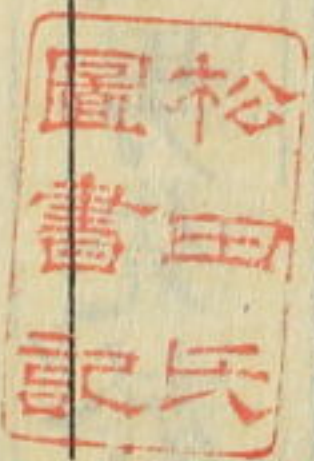 松田氏
圖書記